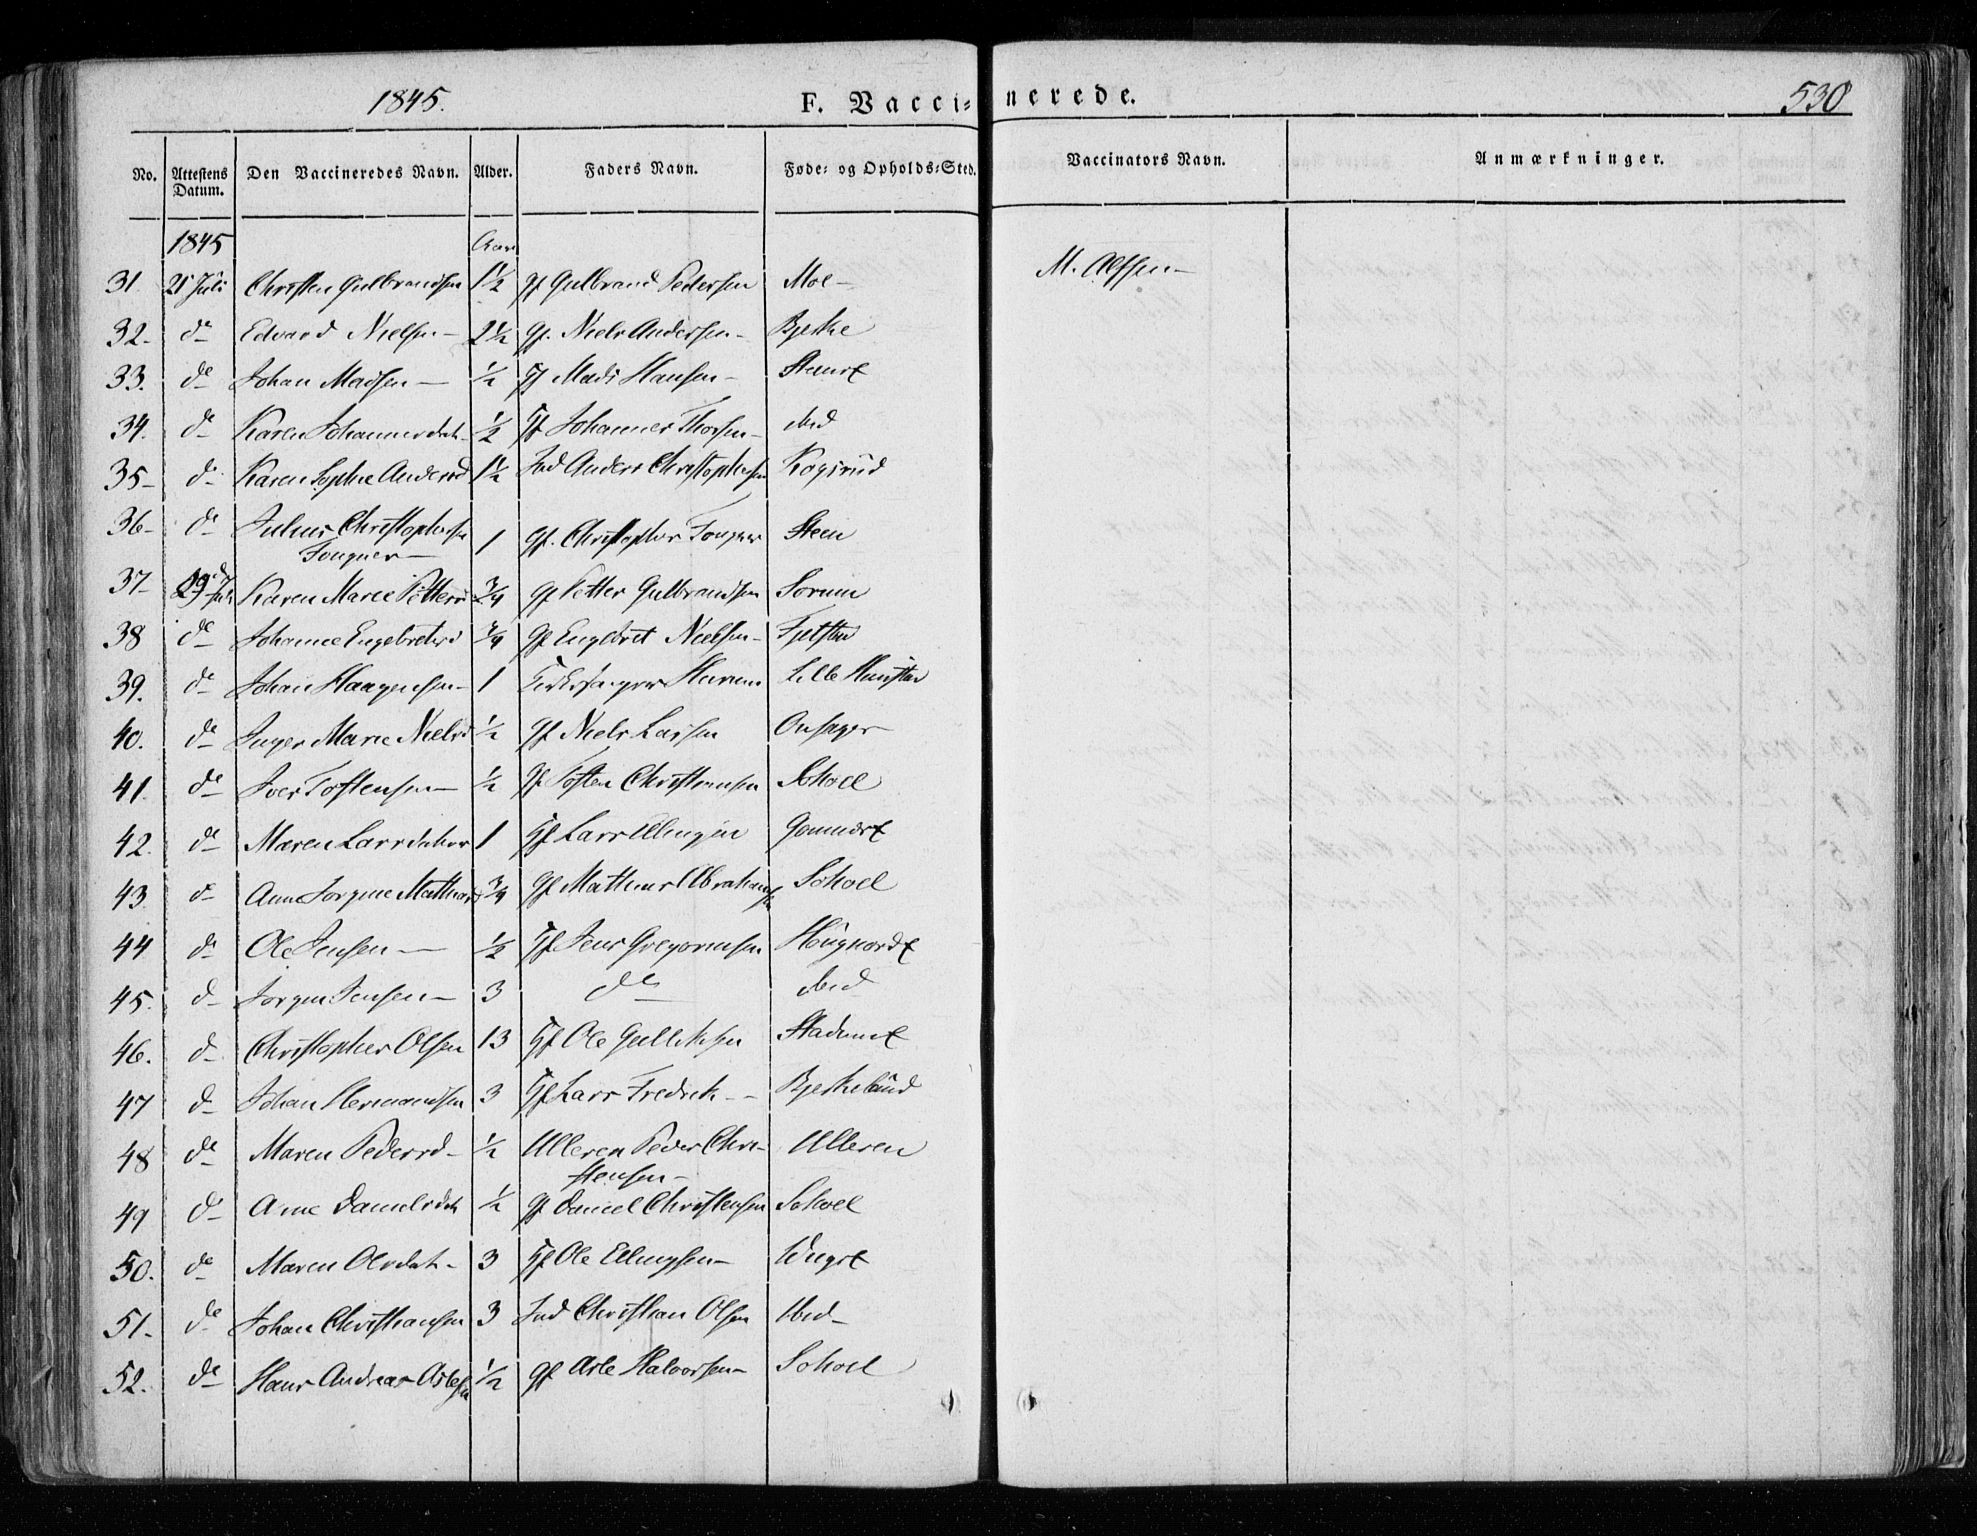 1845. F. Vaccinerede. 530
No. Attestens Datum. Den Vaccineredes Navn. Alder. Faders Navn. Føde- og Opholds-Sted. Vaccinators Navn. Anmærkninger.
1845 Aar
31. 21 Juli Christen Gulbrandsen 1½ Gf Gulbrand Pedersen Moe- M. Alfsen-
32- do Edvard Nielsen- 2½ Gf. Niels Andersen- Bjerke
33. do Johan Madsen- ½ Hf Mads Hansen-
34. do Karen Johannesdat- ½ Hf Johannes Thorsen- ibid
35- do Karen Sophie Andersd 1½ Ind Anders Christophersen
36- do Julius Christophersen 1 Gf. Christopher Fougner Steen
Fougner-
37- Karen Maree Petters ¾ Gf Petter Gulbrandsen Sorum
38 do Johanne Engebretsd ¾ Gf Engebret Nielsen- Fjelstad
39. do Johan Haagensen- 1 Kirkesanger Lille
40. do Inger Marie Nielsd ½ Gf Niels Larsen Onsager
41. do Iver Tostensen- ½ Gf Tosten Christensen Sohoel
42. do Maren Larsdatter 1 Hf Lars Ellingsen
43. do Anne Jorgine Mathias ¾ Gf Mathias Abrahamsen Sohoel
44 do Ole Jensen- ½ Hf Jens Gregoriusen
45. do Jorgen Jensen- 3 do ibid
46. do Christopher Olsen 13 Hf Ole Gulliksen
47 do Johan Hermandsen 3 Hf Lars Fredrik-- Bjerkelund
48 do Maren Pedersd- ½ Ulleren Peder Chri- Ulleren
stensen-
49 do Anne Danielsdat ½ Gf Daniel Christensen Sohoel
50. do Maren Olsdat- 3 Hf Ole Ellingsen-
51- do Johan Christiansen 3 Ind Christian Olsen Ibid-
52. do Hans Andreas Aslesen ½ Gf Asle Halvorsen- Sohoel